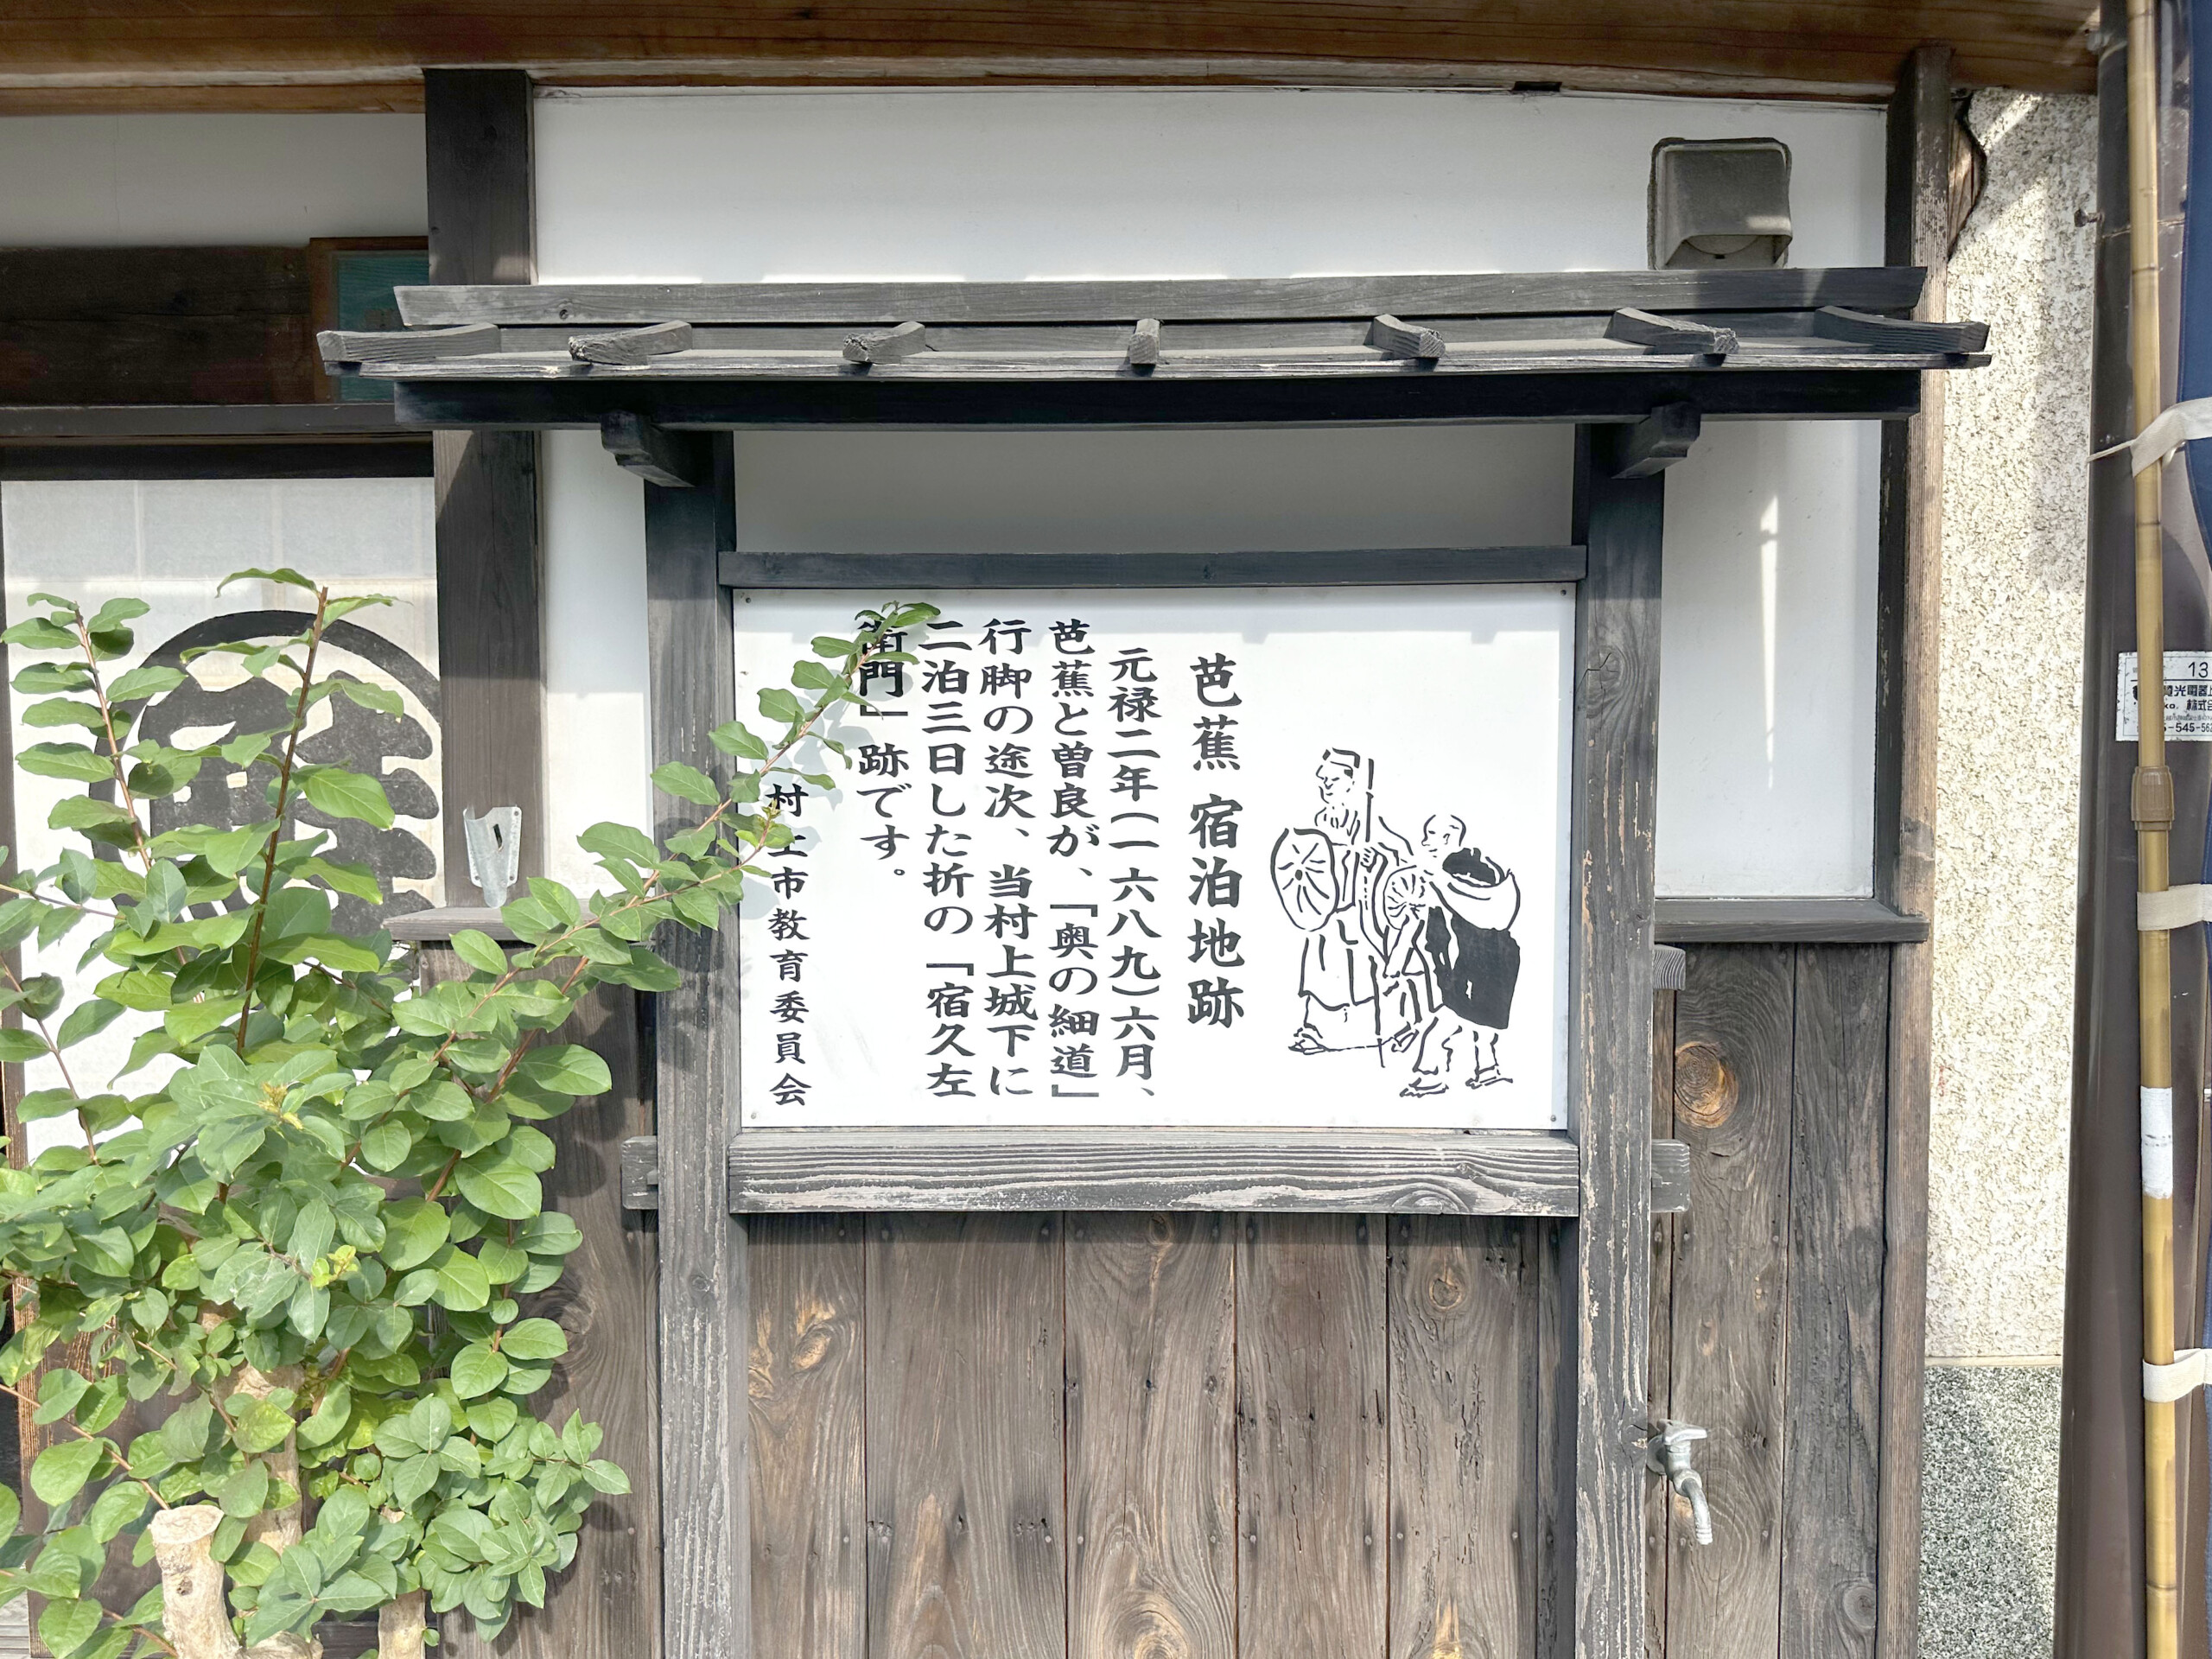 芭蕉 宿泊地跡
元禄二年(一六八九)六月、
芭蕉と曽良が、「奥の細道」
行脚の途次、当村上城下に
二泊三日した折の「宿久左
衛門」跡です。
村上市教育委員会
13
株式会
-545-562